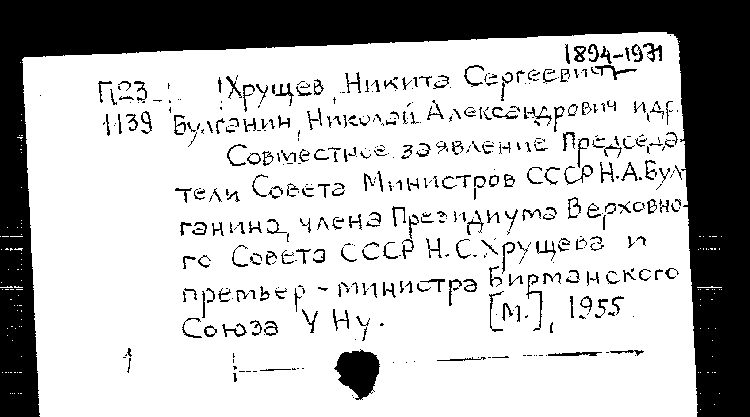 1894-1971
П23 Хрущев, Никита Сергеевич
1139 Булганин, Николай Александрович и др.
Совместное заявление Председа-
тели Совета Министров СССР Н.А.Бул-
ганина, члена Президиума Верховно-
го Совета СССР Н.С.Хрущева и
премьер-министра Бирманского
Союза У Ну. [М.], 1955.
1